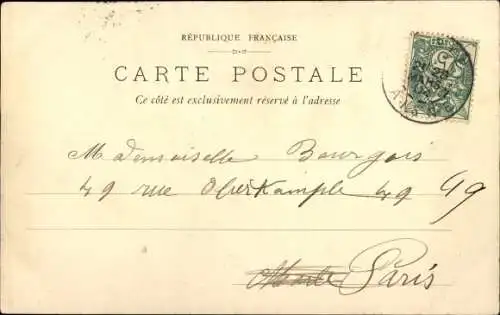 RÉPUBLIQUE FRANÇAISE
CARTE POSTALE
Ce côté est exclusivement réservé à l'adresse
Mademoiselle Bourgois
49 rue Oberkample 49 49
Paris